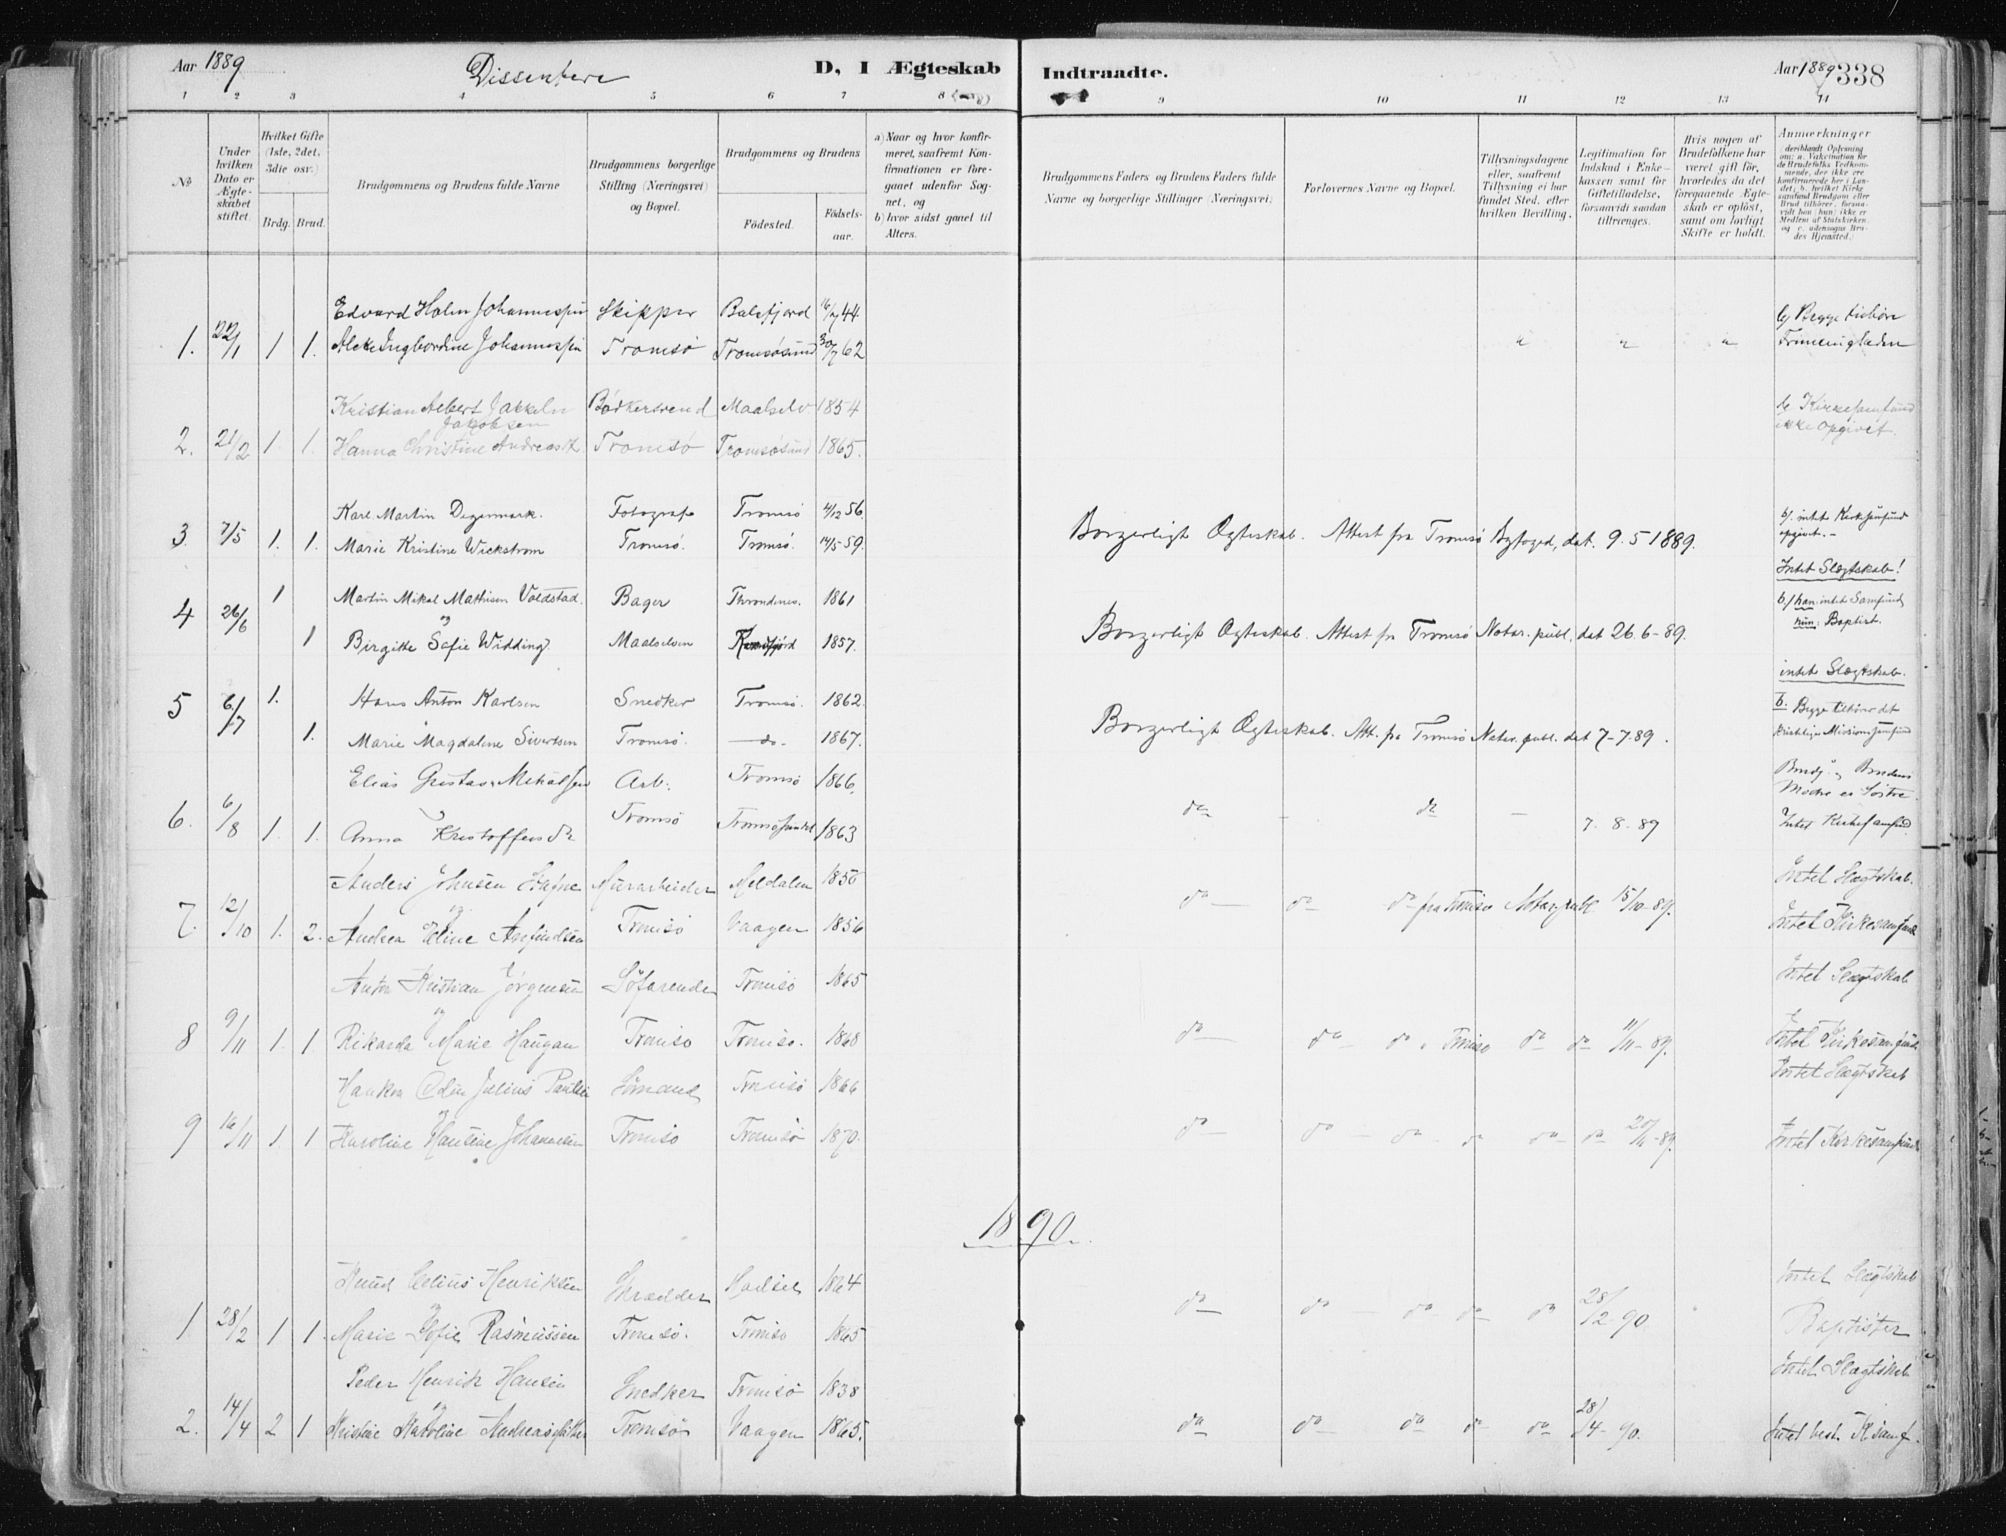 Aar 1889 Dissentere D, I Ægteskab Indtraadte. Aar 1889 338
1 2 3 4 5 6 7 8 9 10 11 12 13 14
No
Under hvilken Dato er Ægteskabet stiftet.
Hvilket Gifte (1ste, 2det, 3die osv.)
Brdg. Brud.
Brudgommens og Brudens fulde Navne
Brudgommens borgerlige Stilling (Næringsvei) og Bopæl.
Brudgommens og Brudens
Fødested. Fødselsaar.
a) Naar og hvor konfirmeret, saafremt Konfirmationen er foregaaet udenfor Sognet, og
b) hvor sidst gaaet til Alters.
Brudgommens Faders og Brudens Faders fulde Navne og borgerlige Stillinger (Næringsvei)
Forlovernes Navne og Bopæl.
Tillysningsdagene eller, saafremt Tillysning ei har fundet Sted, efter hvilken Bevilling.
Legitimation for Indskud i Enkekassen samt for Giftetilladelse, forsaavidt saadan tiltrænges.
Hvis nogen af Brudefolkene har været gift før, hvorledes da det foregaaende Ægteskab er opløst, samt om lovligt Skifte er holdt.
Anmerkninger (deriblandt Oplysning om: a. Vakcination for de Brudefolks Vedkommende, der ikke ere konfirmerede her i Landet; b. hvilket Kirkesamfund Brudgom eller Brud tilhører, forsaavidt han (hun) ikke er Medlem af Statskirken, og c. udensogns Brudes Hjemsted.)
Edvard Holm Johannessen Skipper Balsfjord 16/7 44 b) Begge tilhøre
1. 22/1 1 1. Johannessen Tromsø Tromsøsund 30/7 62 " " " Frimenigheden
Kristian Albert Bødkersvend Maalselv 1854 b/ Kirkesamfund
Jakobsen ikke opgivet.
2. 21/2 1. 1. Hanna Christine Andreasdt Tromsø Tromsøsund 1865.
Karl Martin Degermark. Fotograf Tromsø 4/12 56. b/. intet Kirkesamfund
3. 7/5 1. 1. Marie Kristine Wickstrøm Tromsø. Tromsø. 14/5 59. Borgerligt Ægteskab. Attest fra Tromsø Byfoged, dat. 9.5 1889. opgivet. –
Intet Slægtskab!
1 Martin Mikal Mathisen Voldstad. Bager Throndenes. 1861 b/ han: intet Samfund,
4 26/6 og hun: Baptist.
1 Birgitte Sofie Widding Maalselven 1857. Borgerligt Ægteskab. Attest fra Tromsø Notar. publ. dat 26.6-89.
intet Slægtskab.
5 6/7 1. Hans Anton Karlsen Snedker Tromsø. 1862. b. Begge tilhører det
1. Marie Magdalene Sivertsen Tromsø. do. 1867. Borgerligt Ægteskab. Att. fra Tromsø Notar. publ. dat 7-7.89. kristelige Missionssamfund
Elias Gustav Mikalsen Arb. Tromsø 1866. Brudg. og Brudens
Modre er Søstre.
6. 6/8 1. 1. Anna Kristoffersdt Tromsø Tromsøsundet 1863 do – do – 7. 8. 89 Intet Kirkesamfund
Anders Johnsen Murarbeider Meldalen 1850 Intet Slægtskab.
7. 12/10 1. 2. og Andrea Tromsø Vaagen 1856 do do do fra Tromsø Notar. publ 15/10-89. Intet Kirkesamfund
Anton Kristian Jørgensen Søfarende Tromsø 1865 Intet Slægtskab
8 9/11 1. 1. og Rikarda Marie Haugan Tromsø Tromsø. 1868 do do do Tromsø do do 11/11-89. Intet Kirkesamfund
Haakon Odin Julius Paulsen Sømand Tromsø 1866 Intet Slægtskab
9 16/11 1. 1 og Karoline Hansine Johannesen Tromsø Tromsø 1870. do do do do do do 20/11-89. Intet Kirkesamfund
1890.
Knud Henriksen Skrædder Hadsel 1864 Intet Slægtskab
1 28/2 1 1. og Marie Sofie Rasmussen Tromsø. Tromsø 1865 do do do do do 28/2-90. Baptister
Peder Henrik Hansen Snedker Tromsø 1838 Intet Slægtskab
2. 14/4 2 1 og Kristine Karoline Tromsø Vaagen 1865. do do do do do 28/4-90. Intet best. K.samf.